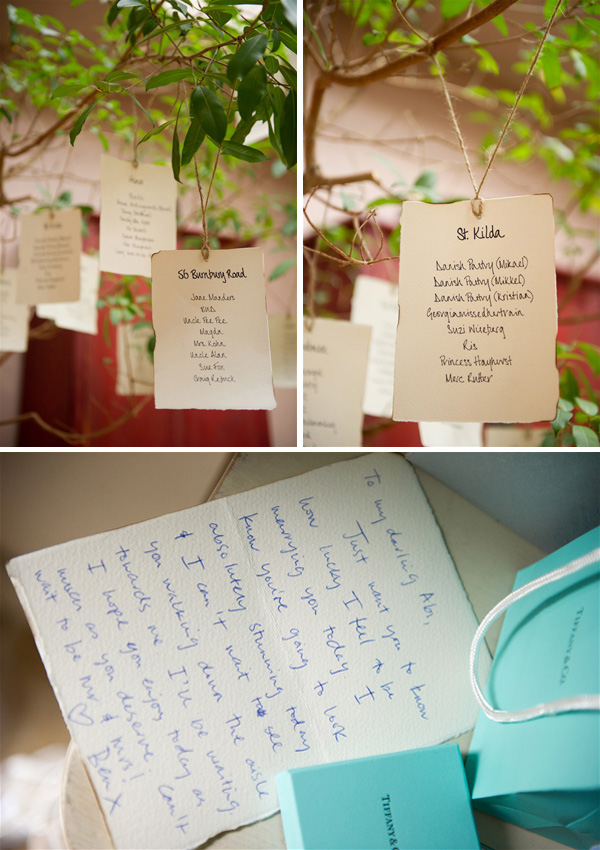 56 Burnbury Road
Jane Manders
Uncle Pee Pee
Magda
Mrs. Kohn
Uncle Alan
Sue Fox
Craig Retnick
St Kilda
Danish Pastry (Mikael)
Danish Pastry (Mikkel)
Danish Pastry (Kristian)
Georgiamissedhertrain
Suzi Wineburg
Ris
Princess Hayhurst
Marc Rutter
To my darling Abi,
Just want you to know
how lucky I feel to be
marrying you today. I
know you're going to look
absolutely stunning today
& I can't wait to see
you walking down the aisle
towards me. I'll be waiting
I hope you enjoy today as
much as you deserve. Can't
wait to be Mr & Mrs!
♡ Ben x
TIFFANY & CO.
TIFFANY & CO.